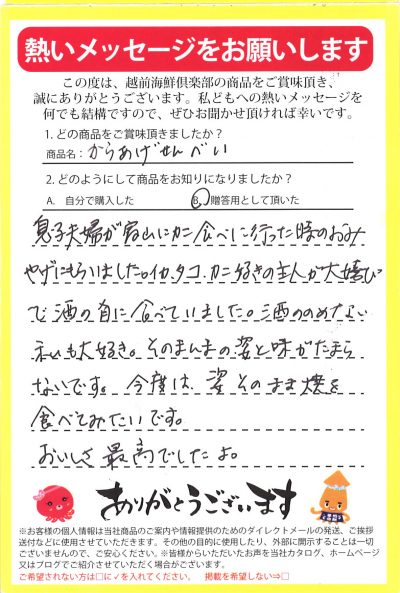 熱いメッセージをお願いします
この度は、越前海鮮倶楽部の商品をご賞味頂き、
誠にありがとうございます。私どもへの熱いメッセージを
何でも結構ですので、ぜひお聞かせ頂ければ幸いです。
1. どの商品をご賞味頂きましたか？
商品名：からあげせんべい
2. どのようにして商品をお知りになりましたか？
A. 自分で購入した B. 贈答用として頂いた
息子夫婦が 山にカニ食べに行った時のおみ
やげにもらいました。イカ、タコ、カニ好きの主人が大喜び
で酒の肴に食べていました。酒ののめない
私も大好き。そのまんまの姿と味がたまら
ないです。今度は、姿そのまま焼を
食べてみたいです。
おいしさ最高でしたよ。
ありがとうございます
※お客様の個人情報は当社商品のご案内や情報提供のためのダイレクトメールの発送、ご挨拶
送付などに使用させていただきます。その他の目的に使用したり、外部に開示することは一切
ございませんので、ご安心ください。※皆様からいただいたお声を当社カタログ、ホームページ
又はブログでご紹介させていただく場合がございます。
ご希望されない方は□に✓を入れてください。 掲載を希望しない⇒□